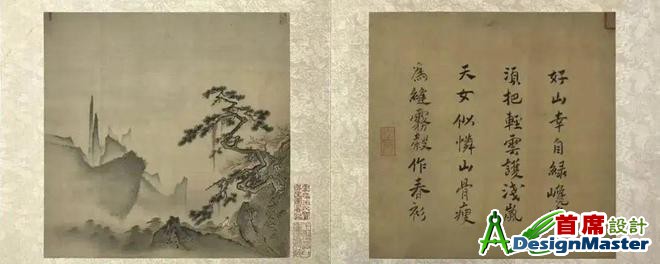 好山幸自綠巉
須把輕雲護淺嵐
天女似憐山骨瘦
為縫霧縠作春衫
首席設計
ADesignMaster